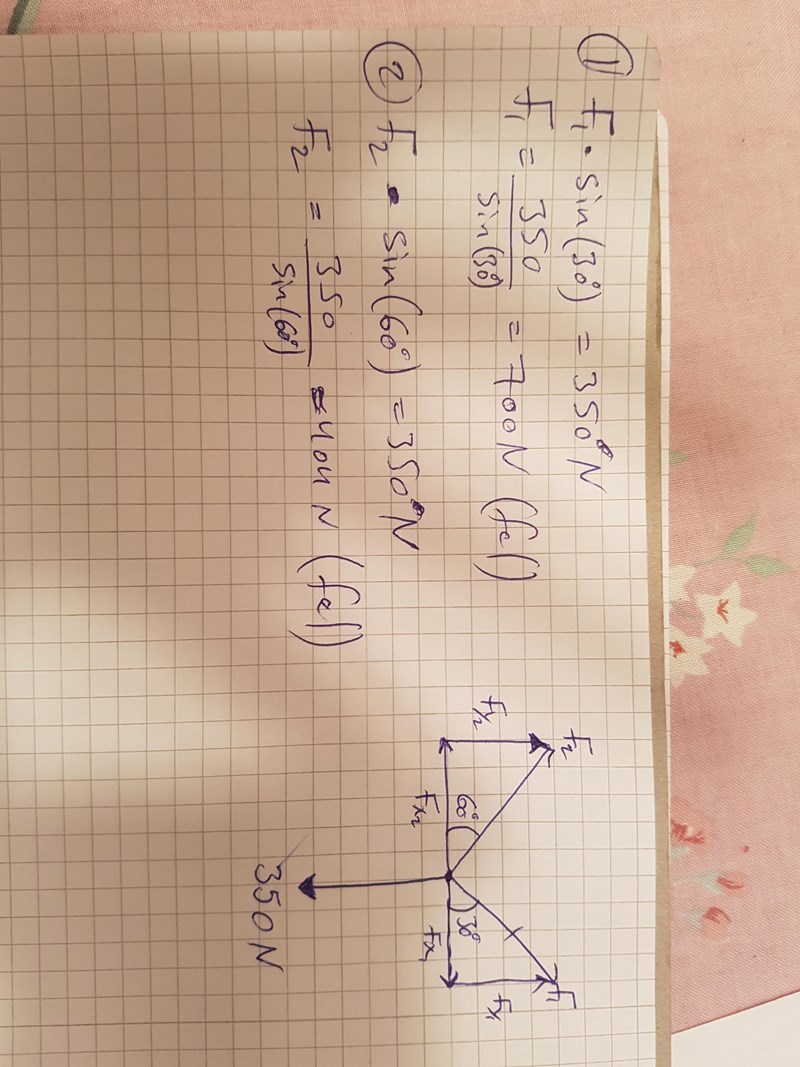 ① F₁ • sin(30°) = 350 N
F₁ = 350 / sin(30°) = 700N (fel)
② F₂ • sin(60°) = 350 N
F₂ = 350 / sin(60°) = 404 N (fel)
F₂
Fy₂
60°
Fx₂
F₁
30°
Fx₁
350N